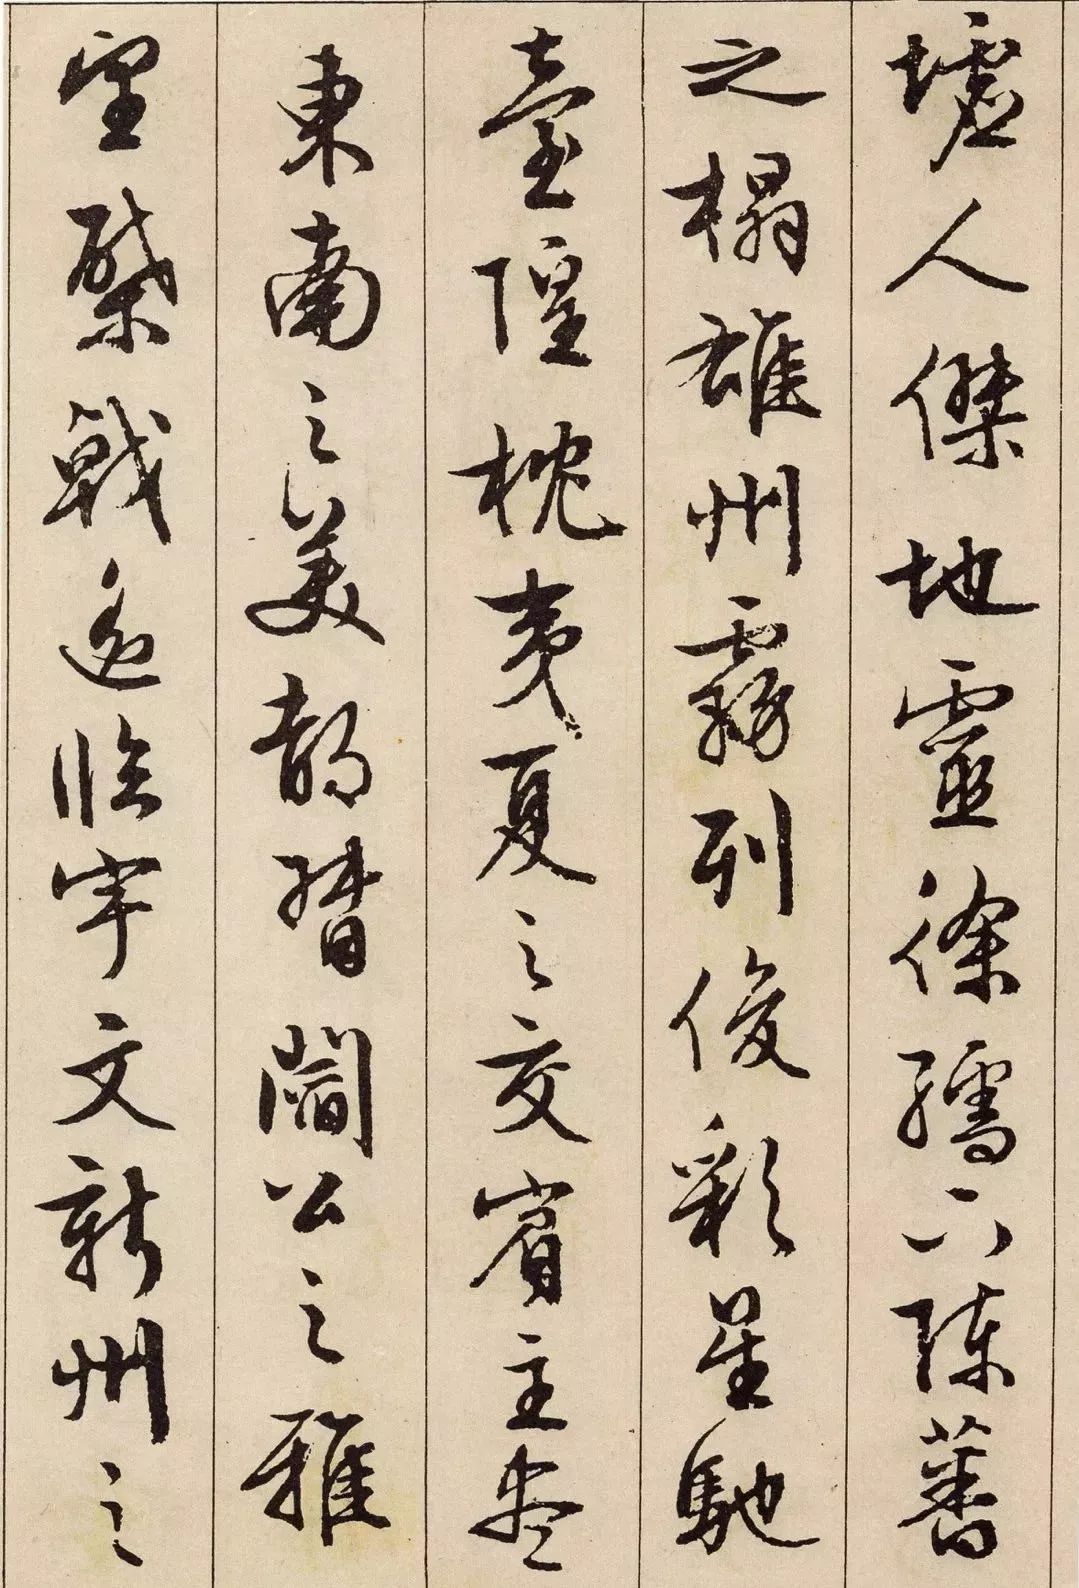 墟人傑地靈徐孺下陳蕃
之榻雄州霧列俊彩星馳
臺隍枕夷夏之交賓主盡
東南之美都督閻公之雅
望棨戟遥臨宇文新州之